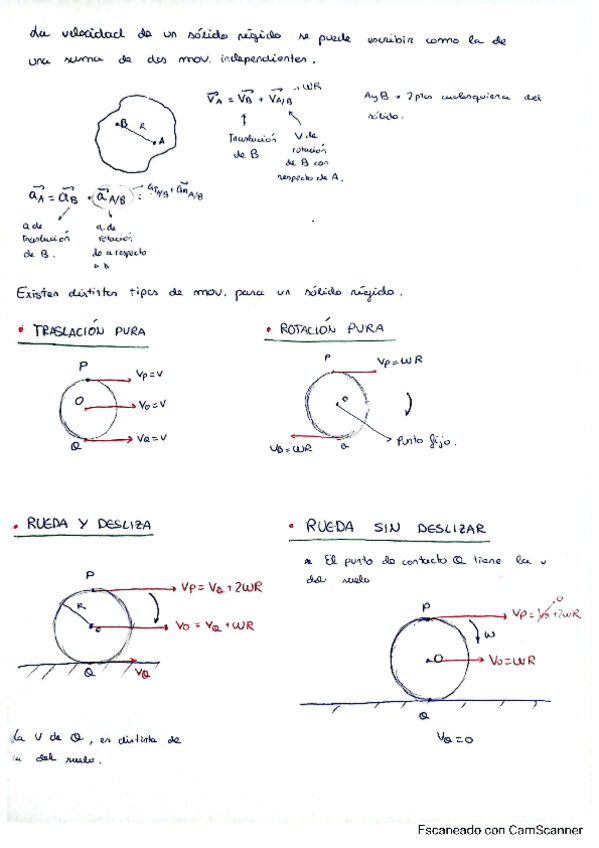 La velocidad de un sólido rígido se puede escribir como la de
una suma de dos mov. independientes.
B R A
V⃗A = V⃗B + V⃗A/B → WR
Traslación de B
V de rotación de B con respecto de A.
A y B → 2 ptos cualesquiera del
sólido.
a⃗A = a⃗B + a⃗A/B = aτA/B + anA/B
a de traslación de B.
a. de rotación de a respecto a b
Existen distintos tipos de mov. para un sólido rígido.
• TRASLACIÓN PURA
P VP=V
O VO=V
Q VQ=V
• ROTACIÓN PURA
P VP=WR
O
Punto fijo.
VQ=WR Q
• RUEDA Y DESLIZA
P VP = VQ + 2WR
R
O VO = VQ + WR
Q VQ
La V de Q, es distinta de
la del suelo.
• RUEDA SIN DESLIZAR
* El punto de contacto Q tiene la v
del suelo
P VP = VQ + 2WR 0
W
O VO=WR
Q
VQ=0
Escaneado con CamScanner